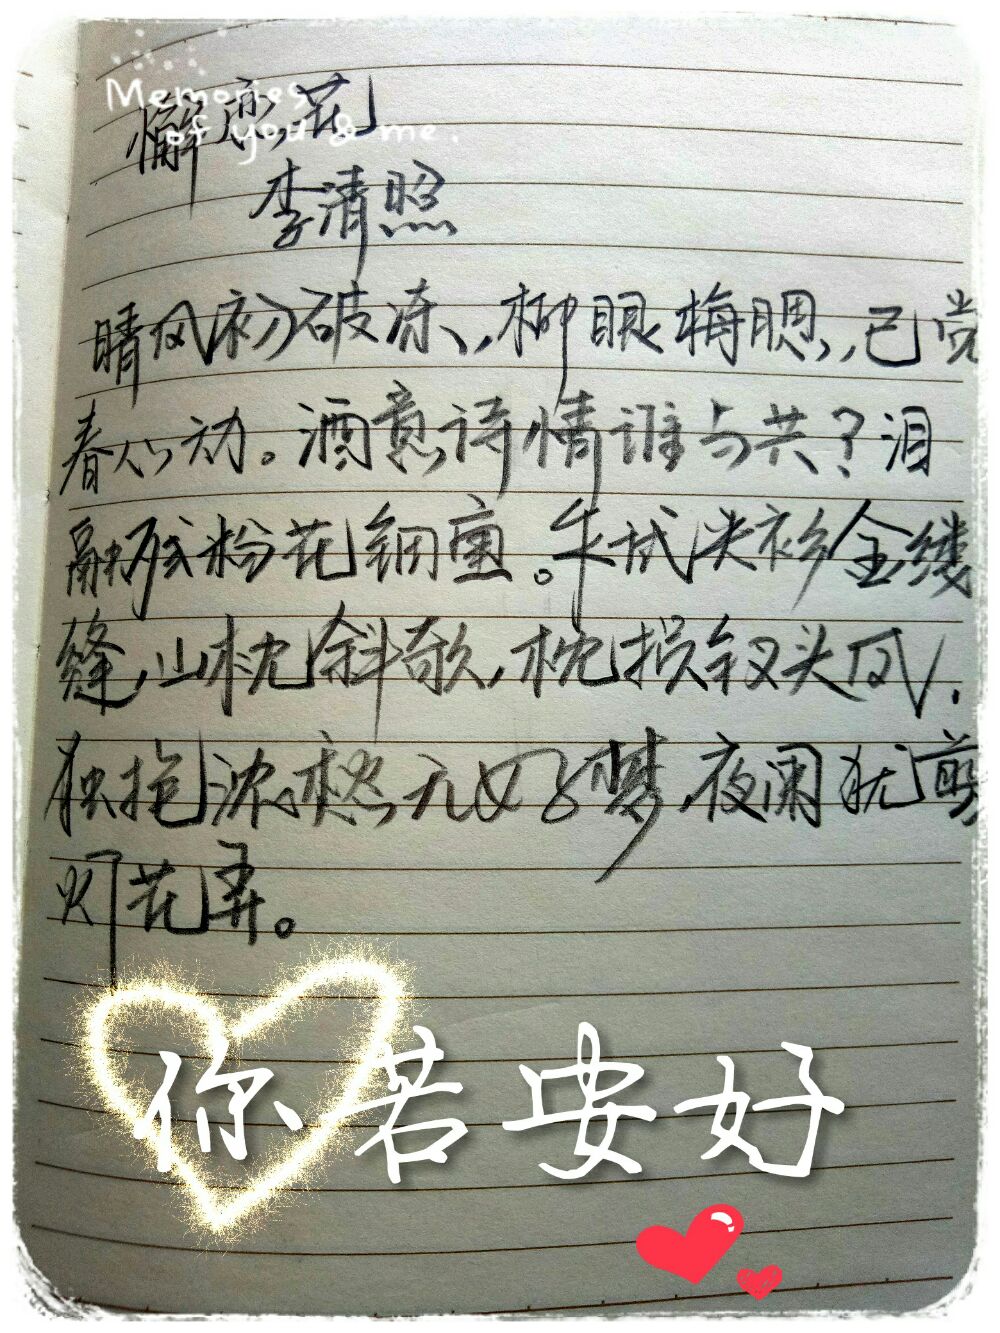 Memories
of you & me.
懈恋花
李清照
晴风初破冻,柳眼梅腮,已觉
春心动。酒意诗情谁与共?泪
融残粉花钿重。乍试夹衫金缕
缝,山枕斜欹,枕损钗头凤.
独抱浓愁无好梦,夜阑犹剪
灯花弄。
你若安好